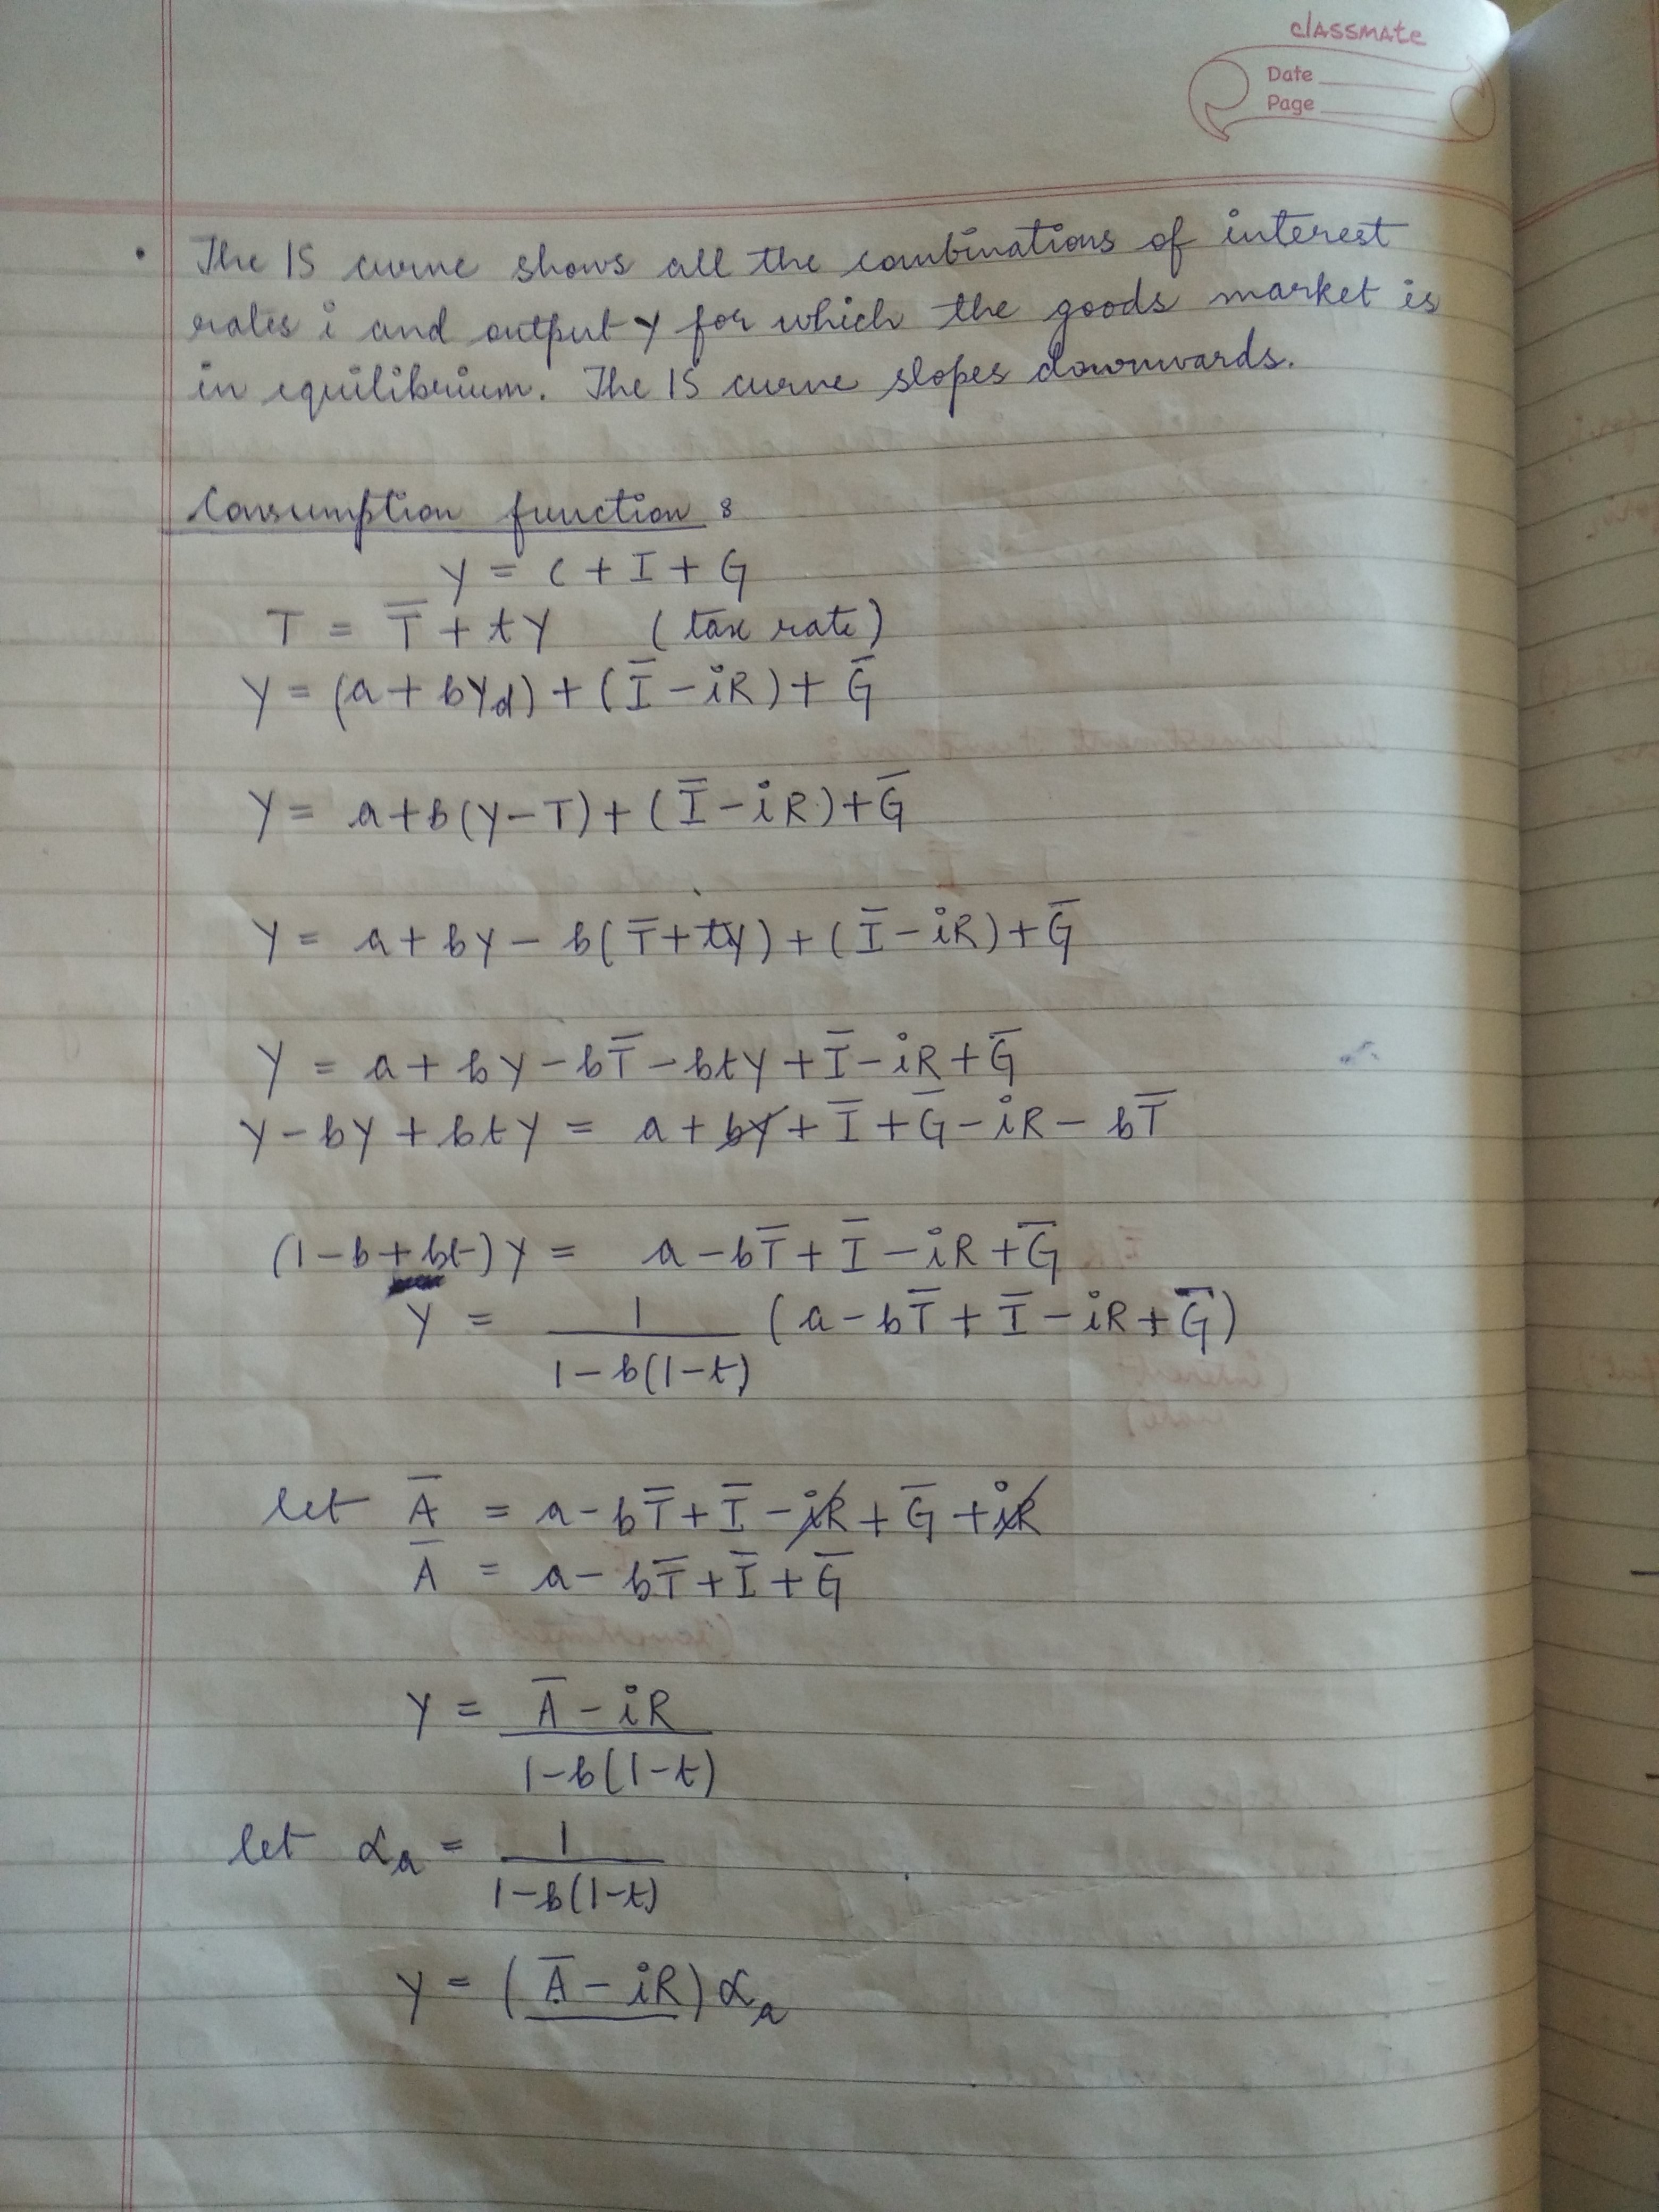 classmate
Date
Page
• The IS curve shows all the combinations of interest
rates i and output Y for which the goods market is
in equilibrium. The IS curve slopes downwards.
Consumption function :
Y = C + I + G
T = T̅ + tY (tax rate)
Y = (a + bYd) + (I̅ - iR) + G̅
Y = a + b(Y - T) + (I̅ - iR) + G̅
Y = a + bY - b(T̅ + tY) + (I̅ - iR) + G̅
Y = a + bY - bT̅ - btY + I̅ - iR + G̅
Y - bY + btY = a + bY + I̅ + G̅ - iR - bT̅
(1 - b + bt)Y = a - bT̅ + I̅ - iR + G̅
Y = 1/(1 - b(1 - t)) (a - bT̅ + I̅ - iR + G̅)
let A̅ = a - bT̅ + I̅ - iR + G̅ + iR
A̅ = a - bT̅ + I̅ + G̅
Y = (A̅ - iR)/(1 - b(1 - t))
let αa = 1/(1 - b(1 - t))
Y = (A̅ - iR)αa